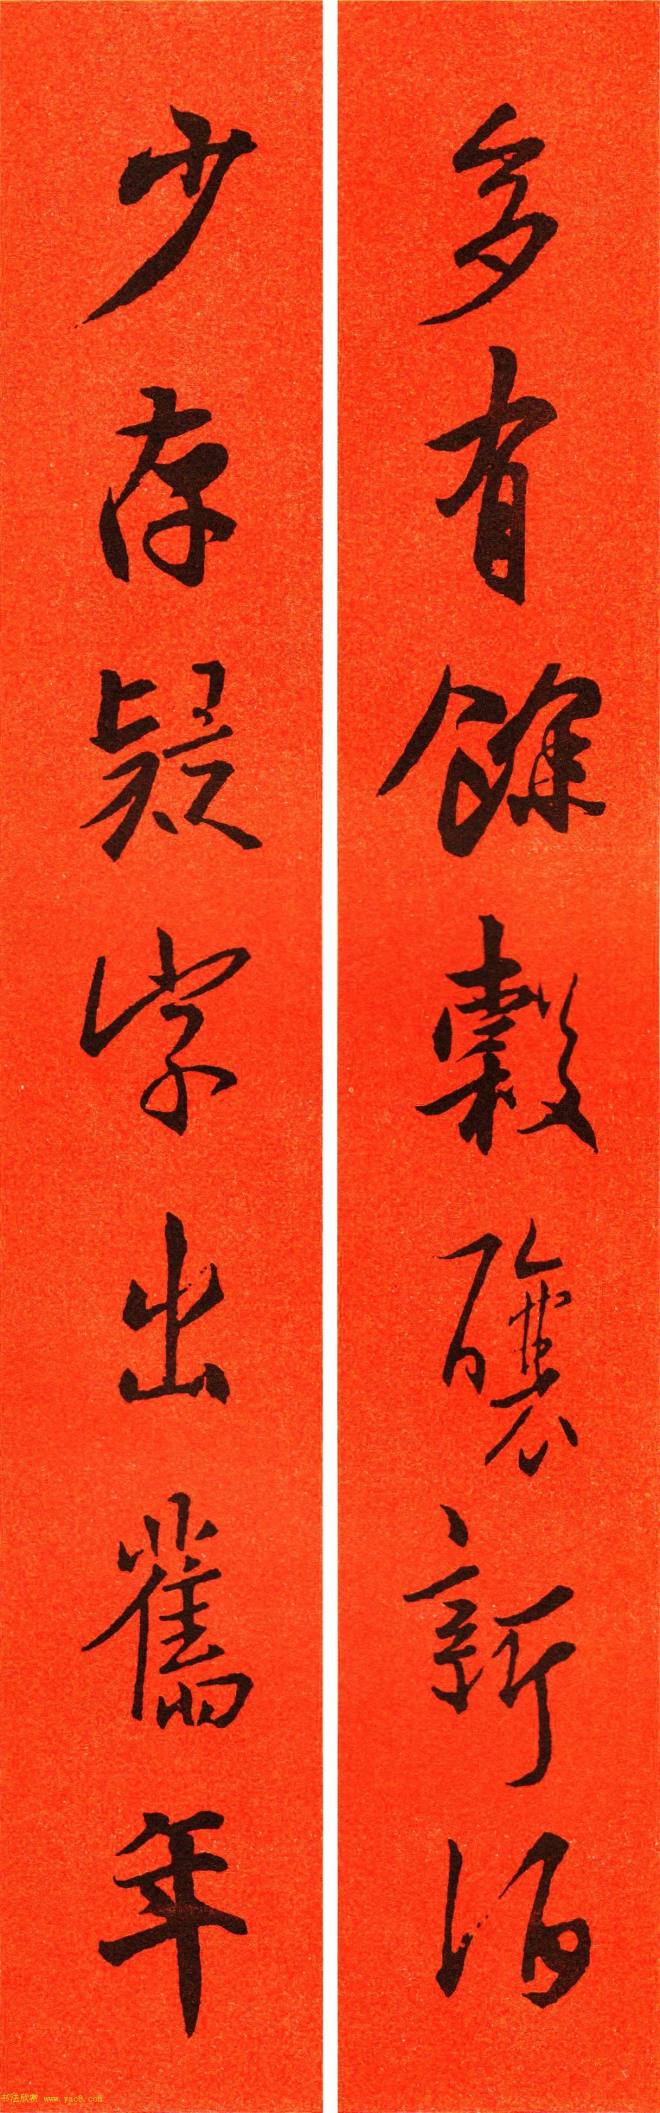 多有餘穀釀新酒
少存疑字出舊年
书法欣赏 www.yac8.com